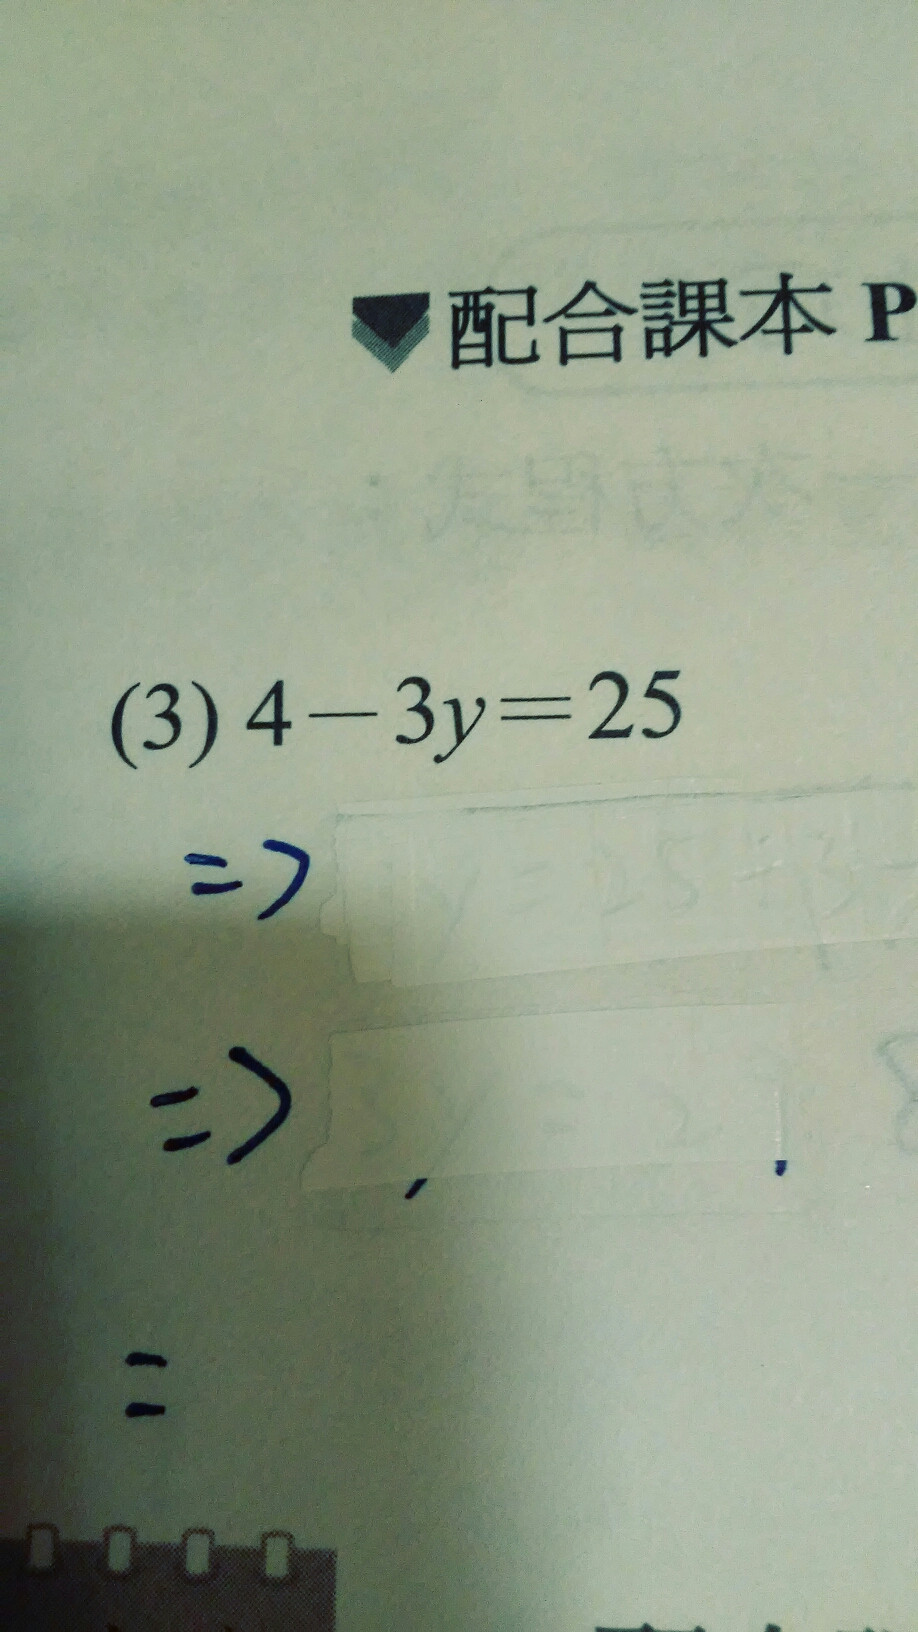 配合課本 P
(3) 4－3y＝25
=>
=>
=